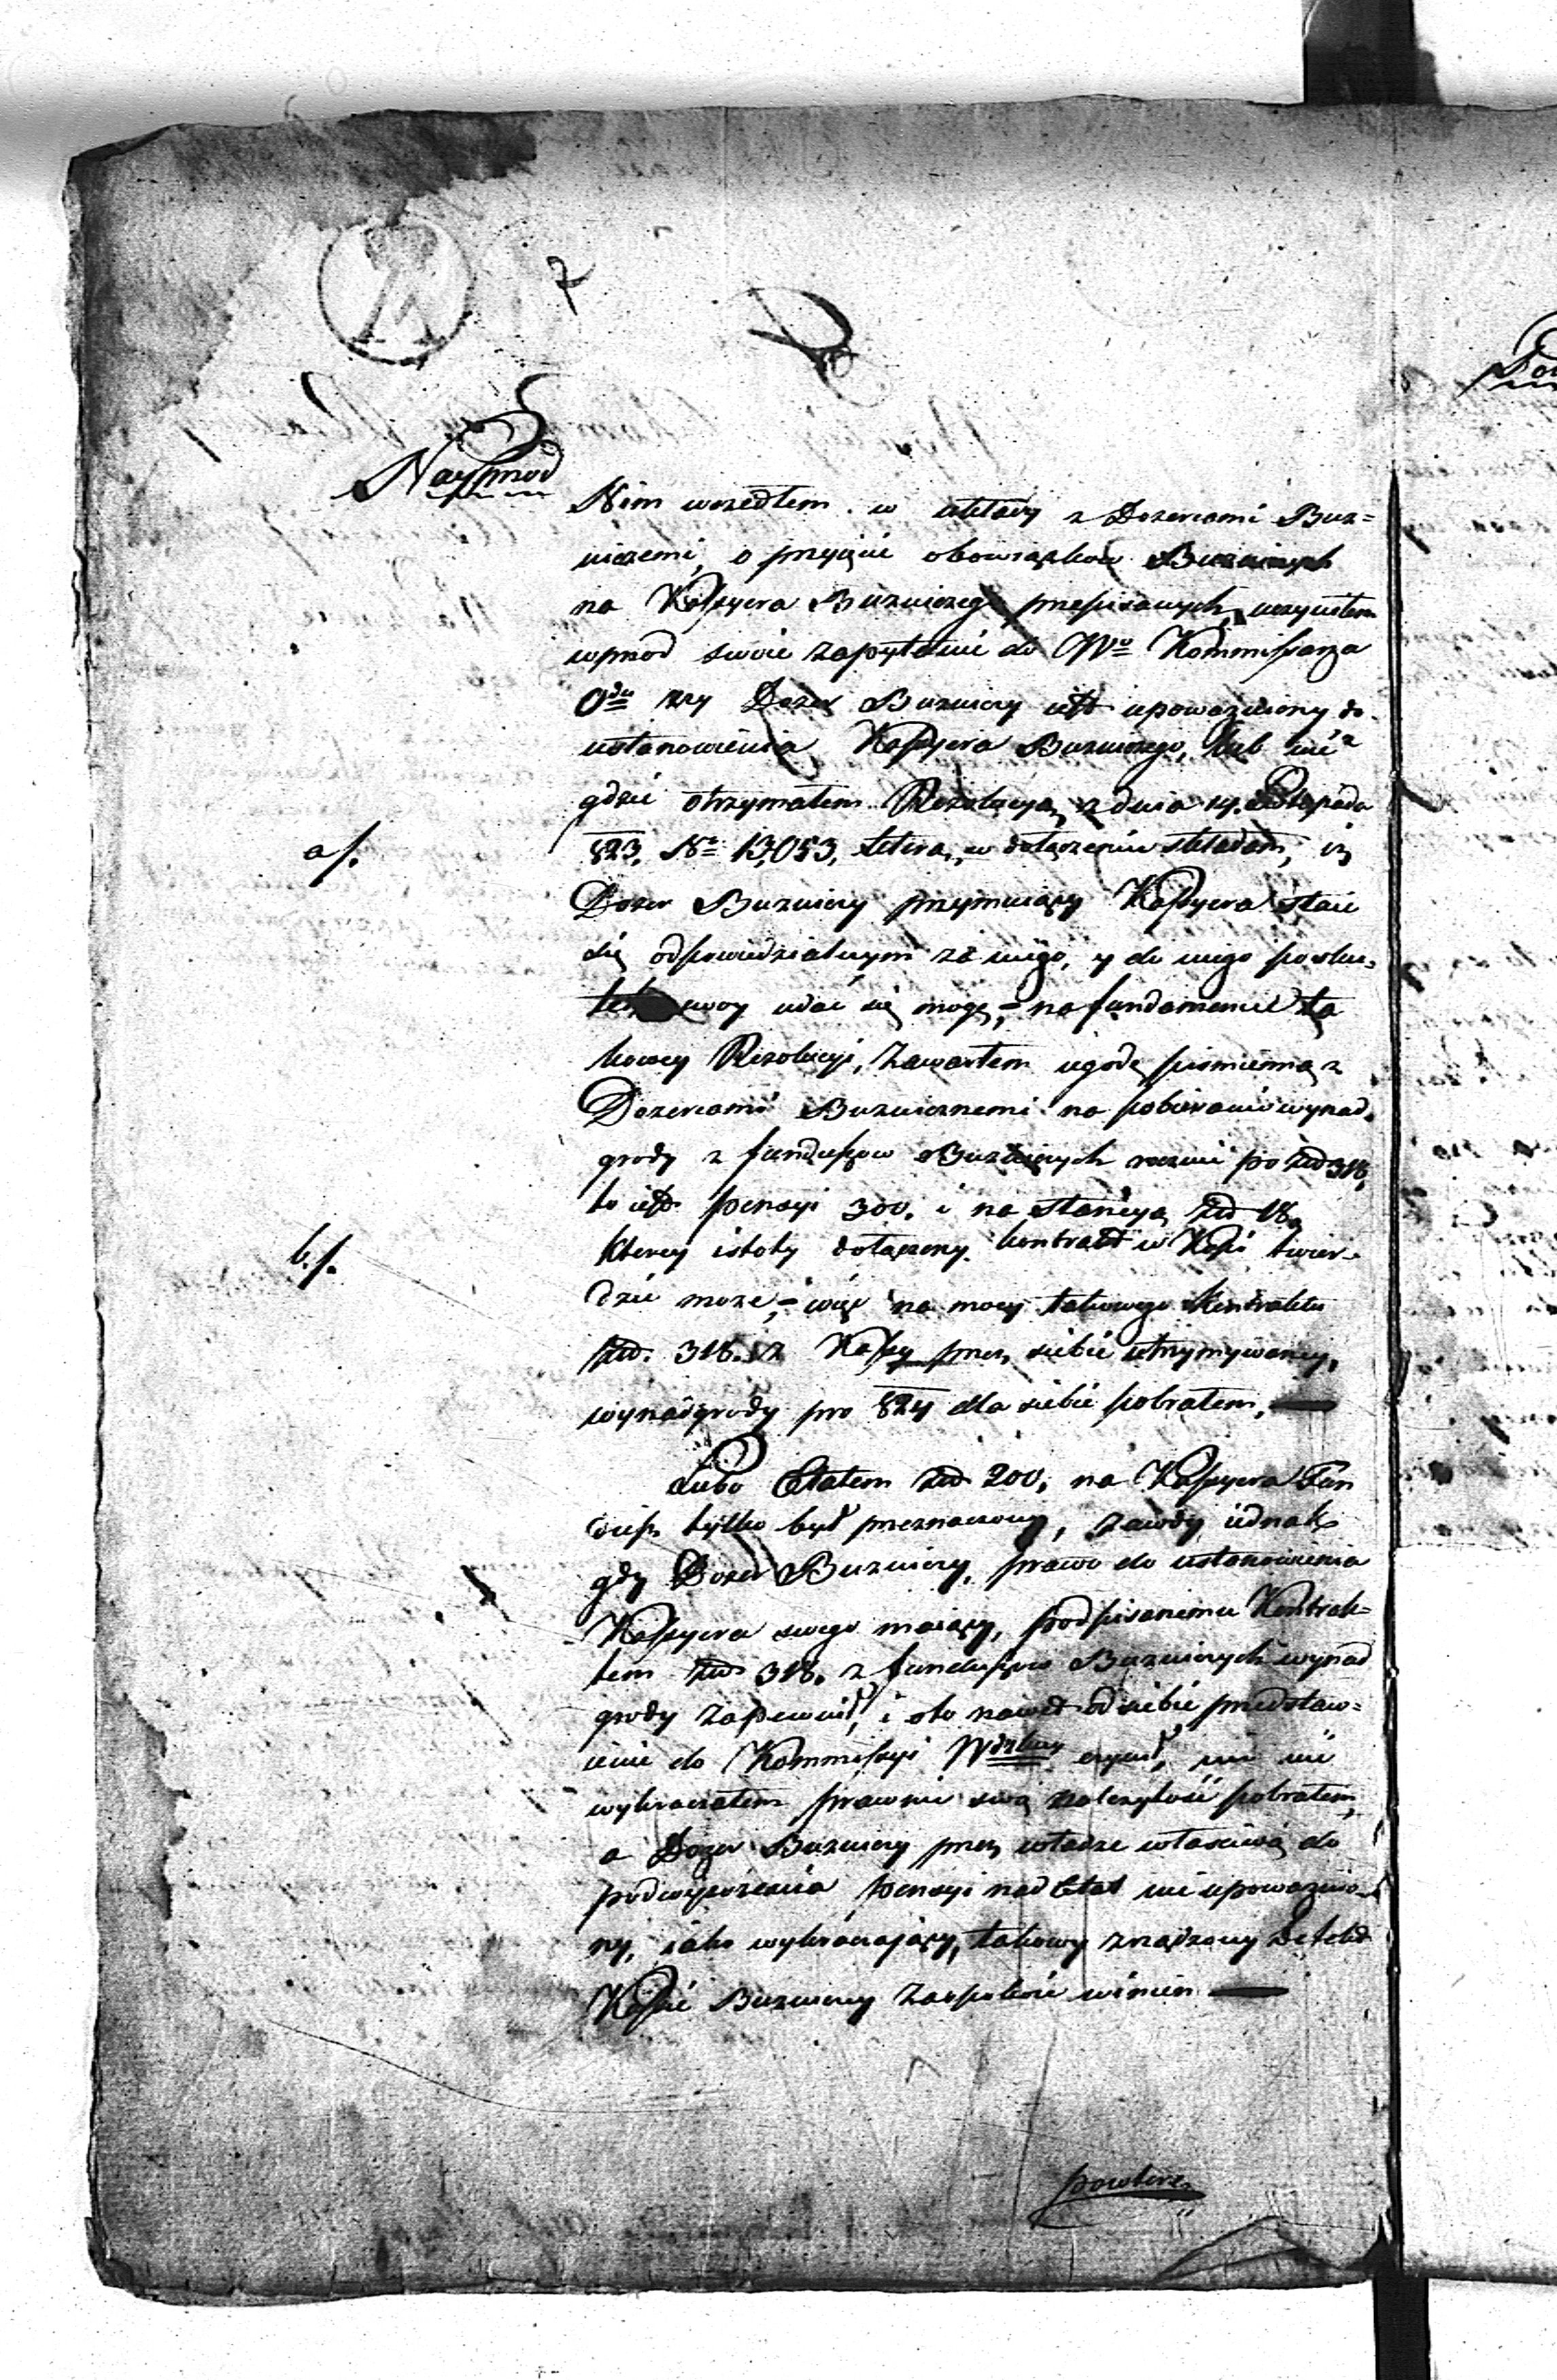 7
Nayprzod
Nim wszedłem w układy z Dozorcami Buz=
niczemi, o przyięcie obowiązkow Buznicznych
na Kassyera Buzniczego przepisanych, uczyniłem
wprzod swoie zapytanie do Wo Kommissarza
Odu czy Dozor Buzniczy iest upoważniony do
ustanowienia Kassyera Buzniczego, lub nie
gdzie otrzymałem Rezolucyą z dnia 14. Listopada
a/. 823. No 13,053. litera, w dołączeniu składam, iż
Dozor Buzniczy przyimuiący Kassyera staie
się odpowiedzialnym za niego, y do niego poszu-
udać się mogę,= na fundamencie ta
kowey Rezolucyi, zawarłem ugodę piśmienną z
Dozorcami Buznicznemi na pobieranie wynad-
grody z funduszow Buznicznych rocznie po złd 318,
to iest pensyi 300. i na stancyą złd 18,
b/. Ktorey istoty dołączony kontrakt w Kopii twier-
dzić może,= więc na mocy takowego Kontraktu
złd. 318. z Kassy przez siebie utrzymywaney,
wynadgrody pro 824 dla siebie pobrałem,
Lubo Etatem złd 200, na Kassyera Fun
dusz tylko był przeznaczony, zawdy iednak
gdy Dozor Buzniczy, prawo do ustanowienia
Kassyera swego maiący, podpisanemu Kontrak=
tem złd 318. z funduszow Buznicznych wynad
grody zapewnił, i oto nawet od siebie przedstaw=
ienie do Kommissyi Wdzkiey czynił, nie
wykraczałem prawnie swą należytość pobrałem,
a Dozor Buzniczy przez władze właściwą do
podwyższenia pensyi nad Etat nie upoważnio-
ny, iako wykraczaiący, takowy zrządzony Defekt
Kassie Buzniczey zaspokoić winien
powtore